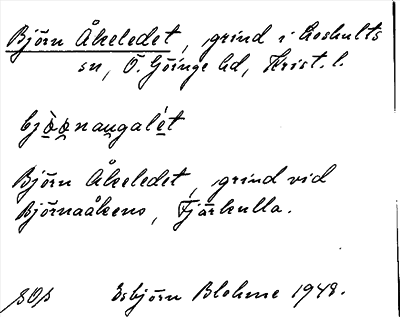 Björn Åkeledet, grind i Loshults
sn, Ö. Göinge hd, Krist. l.
Björn Åkeledet, grind vid
Björnaåkens, Fjärkulla.
Esbjörn Blohme 1948.